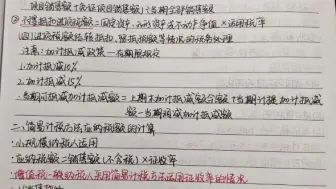 项目销售额+免征项目销售额)÷当期全部销售额
②不得抵扣进项税额=固定资产、无形资产或不动产净值×适用税率
(四)进项税额结转抵扣、留抵税额等情况的税务处理
注意:加计抵减政策—有期限规定
1.加计抵减10%
2.加计抵减15%
·当期可抵减加计抵减额=上期末加计抵减额余额+当期计提加计抵减
额-当期调减加计抵减额
二、简易计税方法应纳税额的计算
·小规模纳税人适用
·应纳税额=销售额(不含税)×征收率
·增值税一般纳税人采用简易计税方法适用征收率的情况